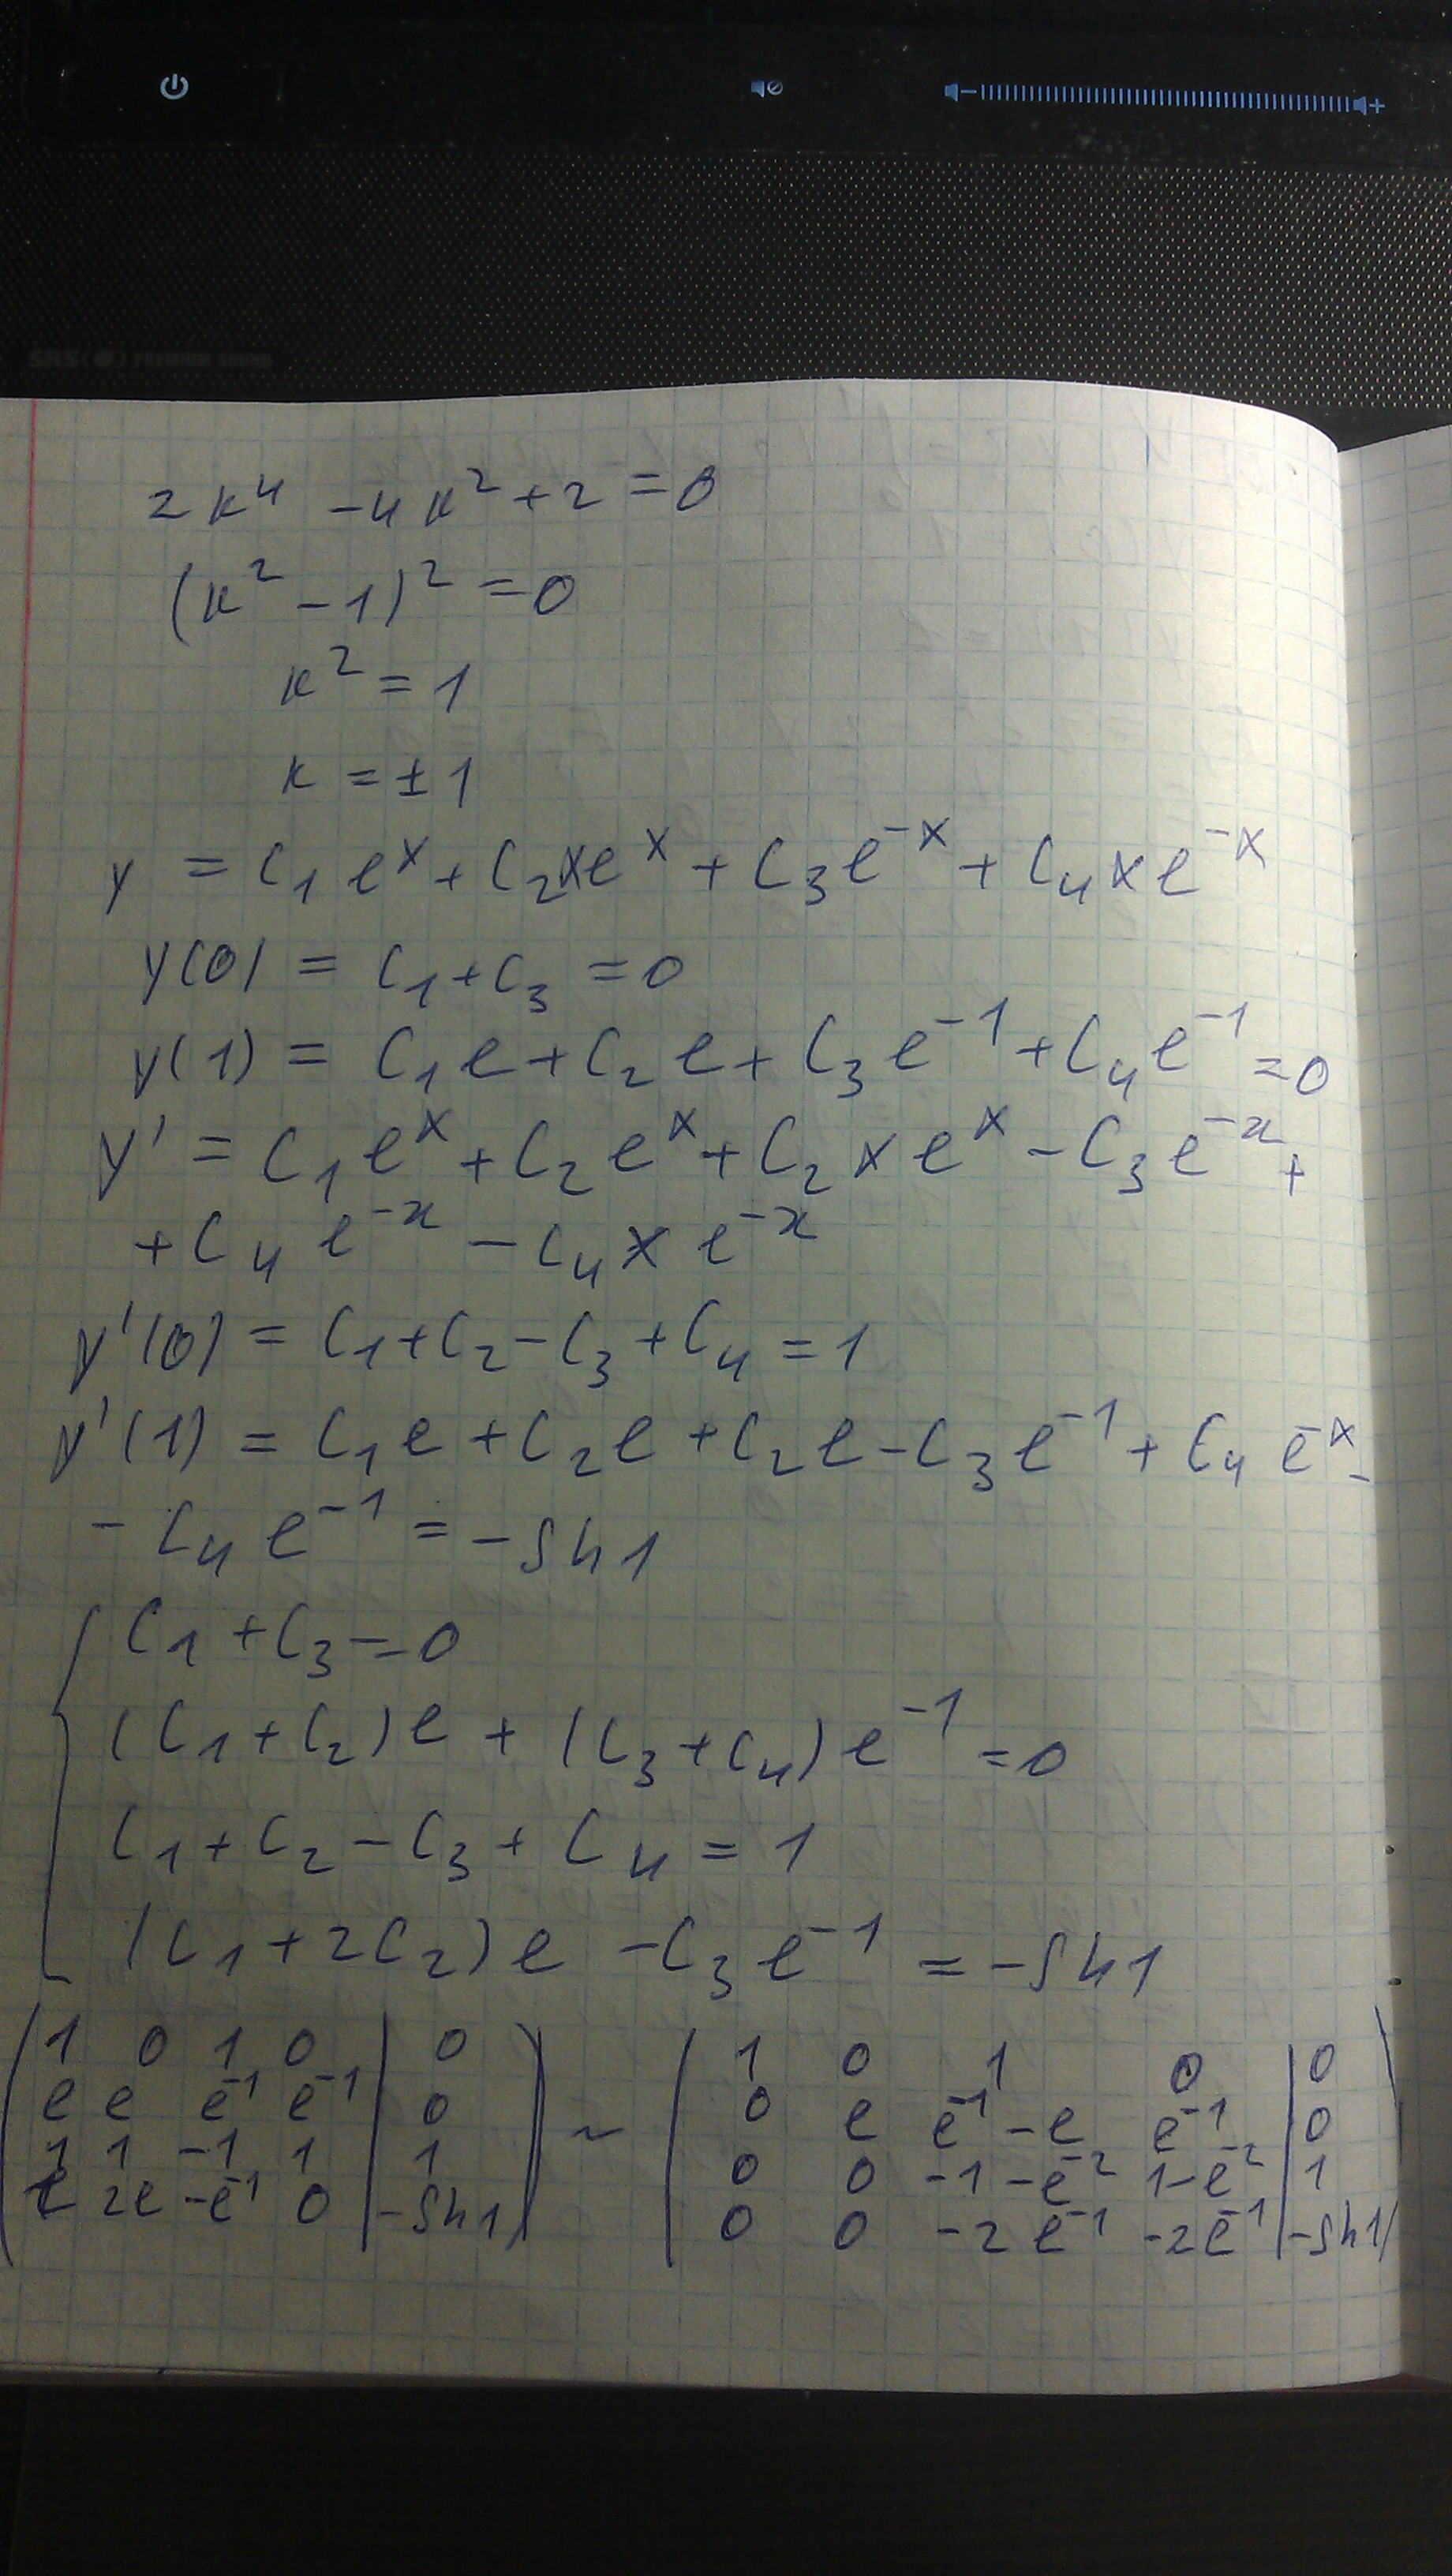 SRS(●) PREMIUM SOUND
2k⁴ - 4k² + 2 = 0
(k² - 1)² = 0
k² = 1
k = ±1
y = C₁eˣ + C₂xeˣ + C₃e⁻ˣ + C₄xe⁻ˣ
y(0) = C₁ + C₃ = 0
y(1) = C₁e + C₂e + C₃e⁻¹ + C₄e⁻¹ = 0
y' = C₁eˣ + C₂eˣ + C₂xeˣ - C₃e⁻ˣ +
+ C₄e⁻ˣ - C₄xe⁻ˣ
y'(0) = C₁ + C₂ - C₃ + C₄ = 1
y'(1) = C₁e + C₂e + C₂e - C₃e⁻¹ + C₄e⁻ˣ -
- C₄e⁻¹ = -sh1
C₁ + C₃ = 0
(C₁ + C₂)e + (C₃ + C₄)e⁻¹ = 0
C₁ + C₂ - C₃ + C₄ = 1
(C₁ + 2C₂)e - C₃e⁻¹ = -sh1
1 0 1 0 | 0 1 0 1 0 | 0
e e e⁻¹ e⁻¹ | 0 ~ 0 e e⁻¹-e e⁻¹ | 0
1 1 -1 1 | 1 0 0 -1-e⁻² 1-e⁻² | 1
e 2e -e⁻¹ 0 | -sh1 0 0 -2e⁻¹ -2e⁻¹ | -sh1